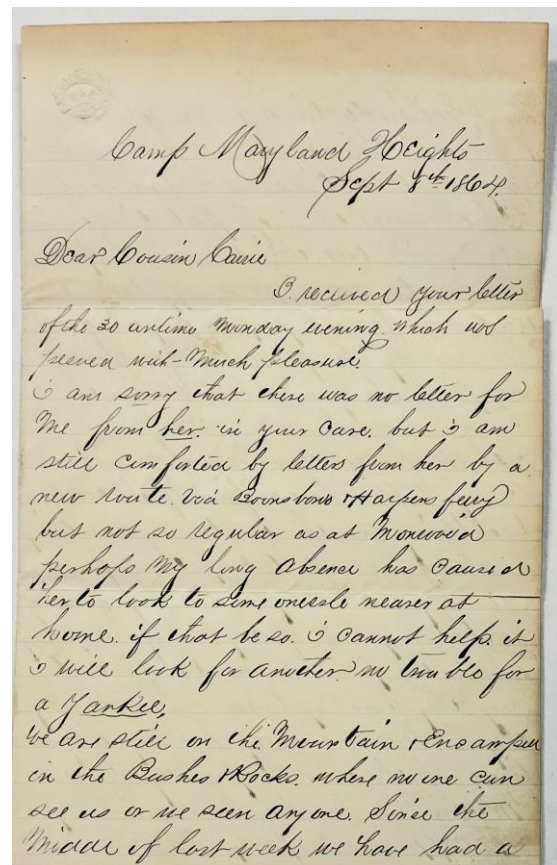 Camp Maryland Heights
Sept 8th 1864.
Dear Cousin Carrie
I recieved your letter
of the 30 untimo Monday evening. which was
peeved with Much pleasure.
i am sorry that there was no letter for
Me from her. in your Care. but i am
still Comforted by letters from her by a
new route. via Boonsboro & Harpers ferry
but not so regular as at
perhaps My long Absence has Caused
her to look to some onesle nearer at
home. if that be so. i Cannot help it
i will look for another no trouble for
a Yankee,
we are still on the Mountain & Encamped
in the Bushes & Rocks. where no one Can
see us or we seen any one. Sinse the
Middle of last week we have had a